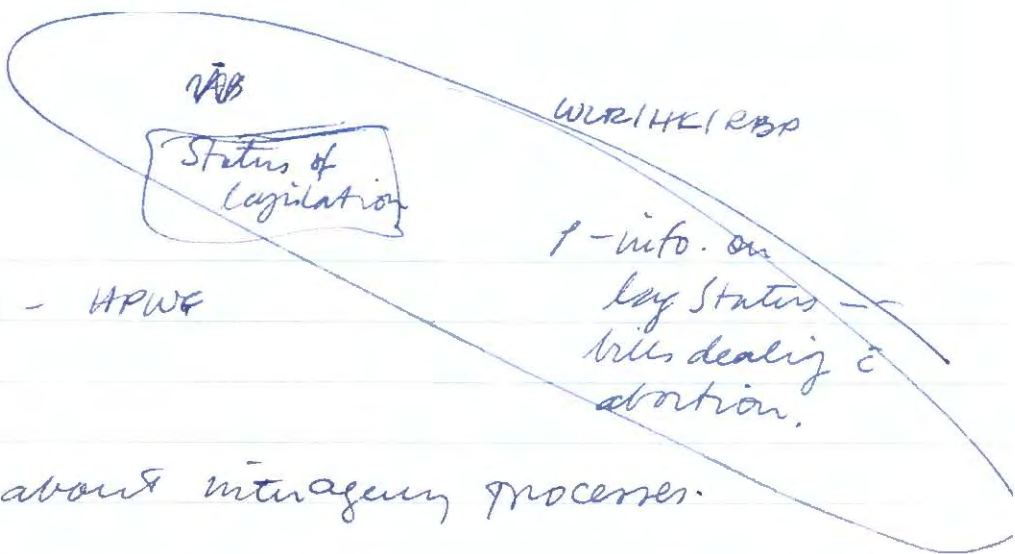 Status of
legislation
WLR/HK/RBP
P-info. on
leg Status —
bills dealing c̄
abortion.
- HPWG
about interagency processes.